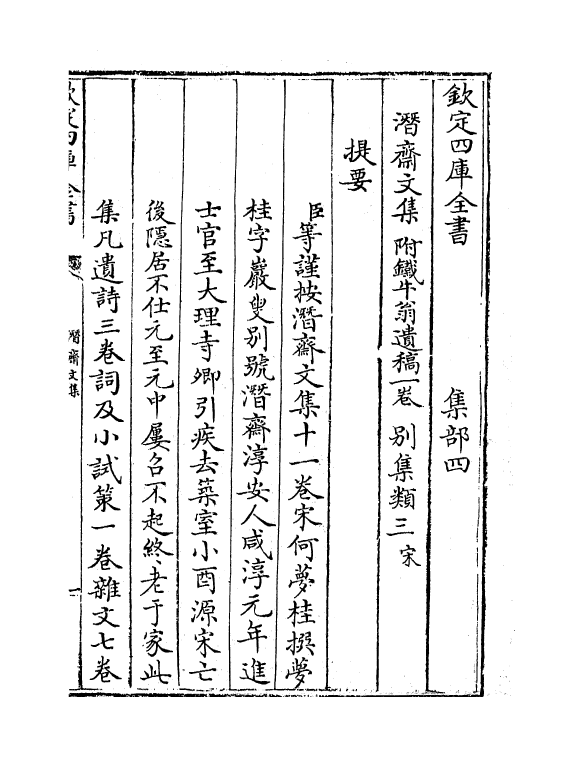 欽定四庫全書　集部四
潛齋文集 附鐵牛翁遺稿一卷　別集類三 宋
提要
臣等謹按潛齋文集十一卷宋何夢桂撰夢
桂字巖叟別號潛齋淳安人咸淳元年進
士官至大理寺卿引疾去築室小酉源宋亡
後隱居不仕元至元中屢召不起終老于家此
集凡遺詩三卷詞及小試策一卷雜文七卷
欽定四庫全書　潛齋文集　一